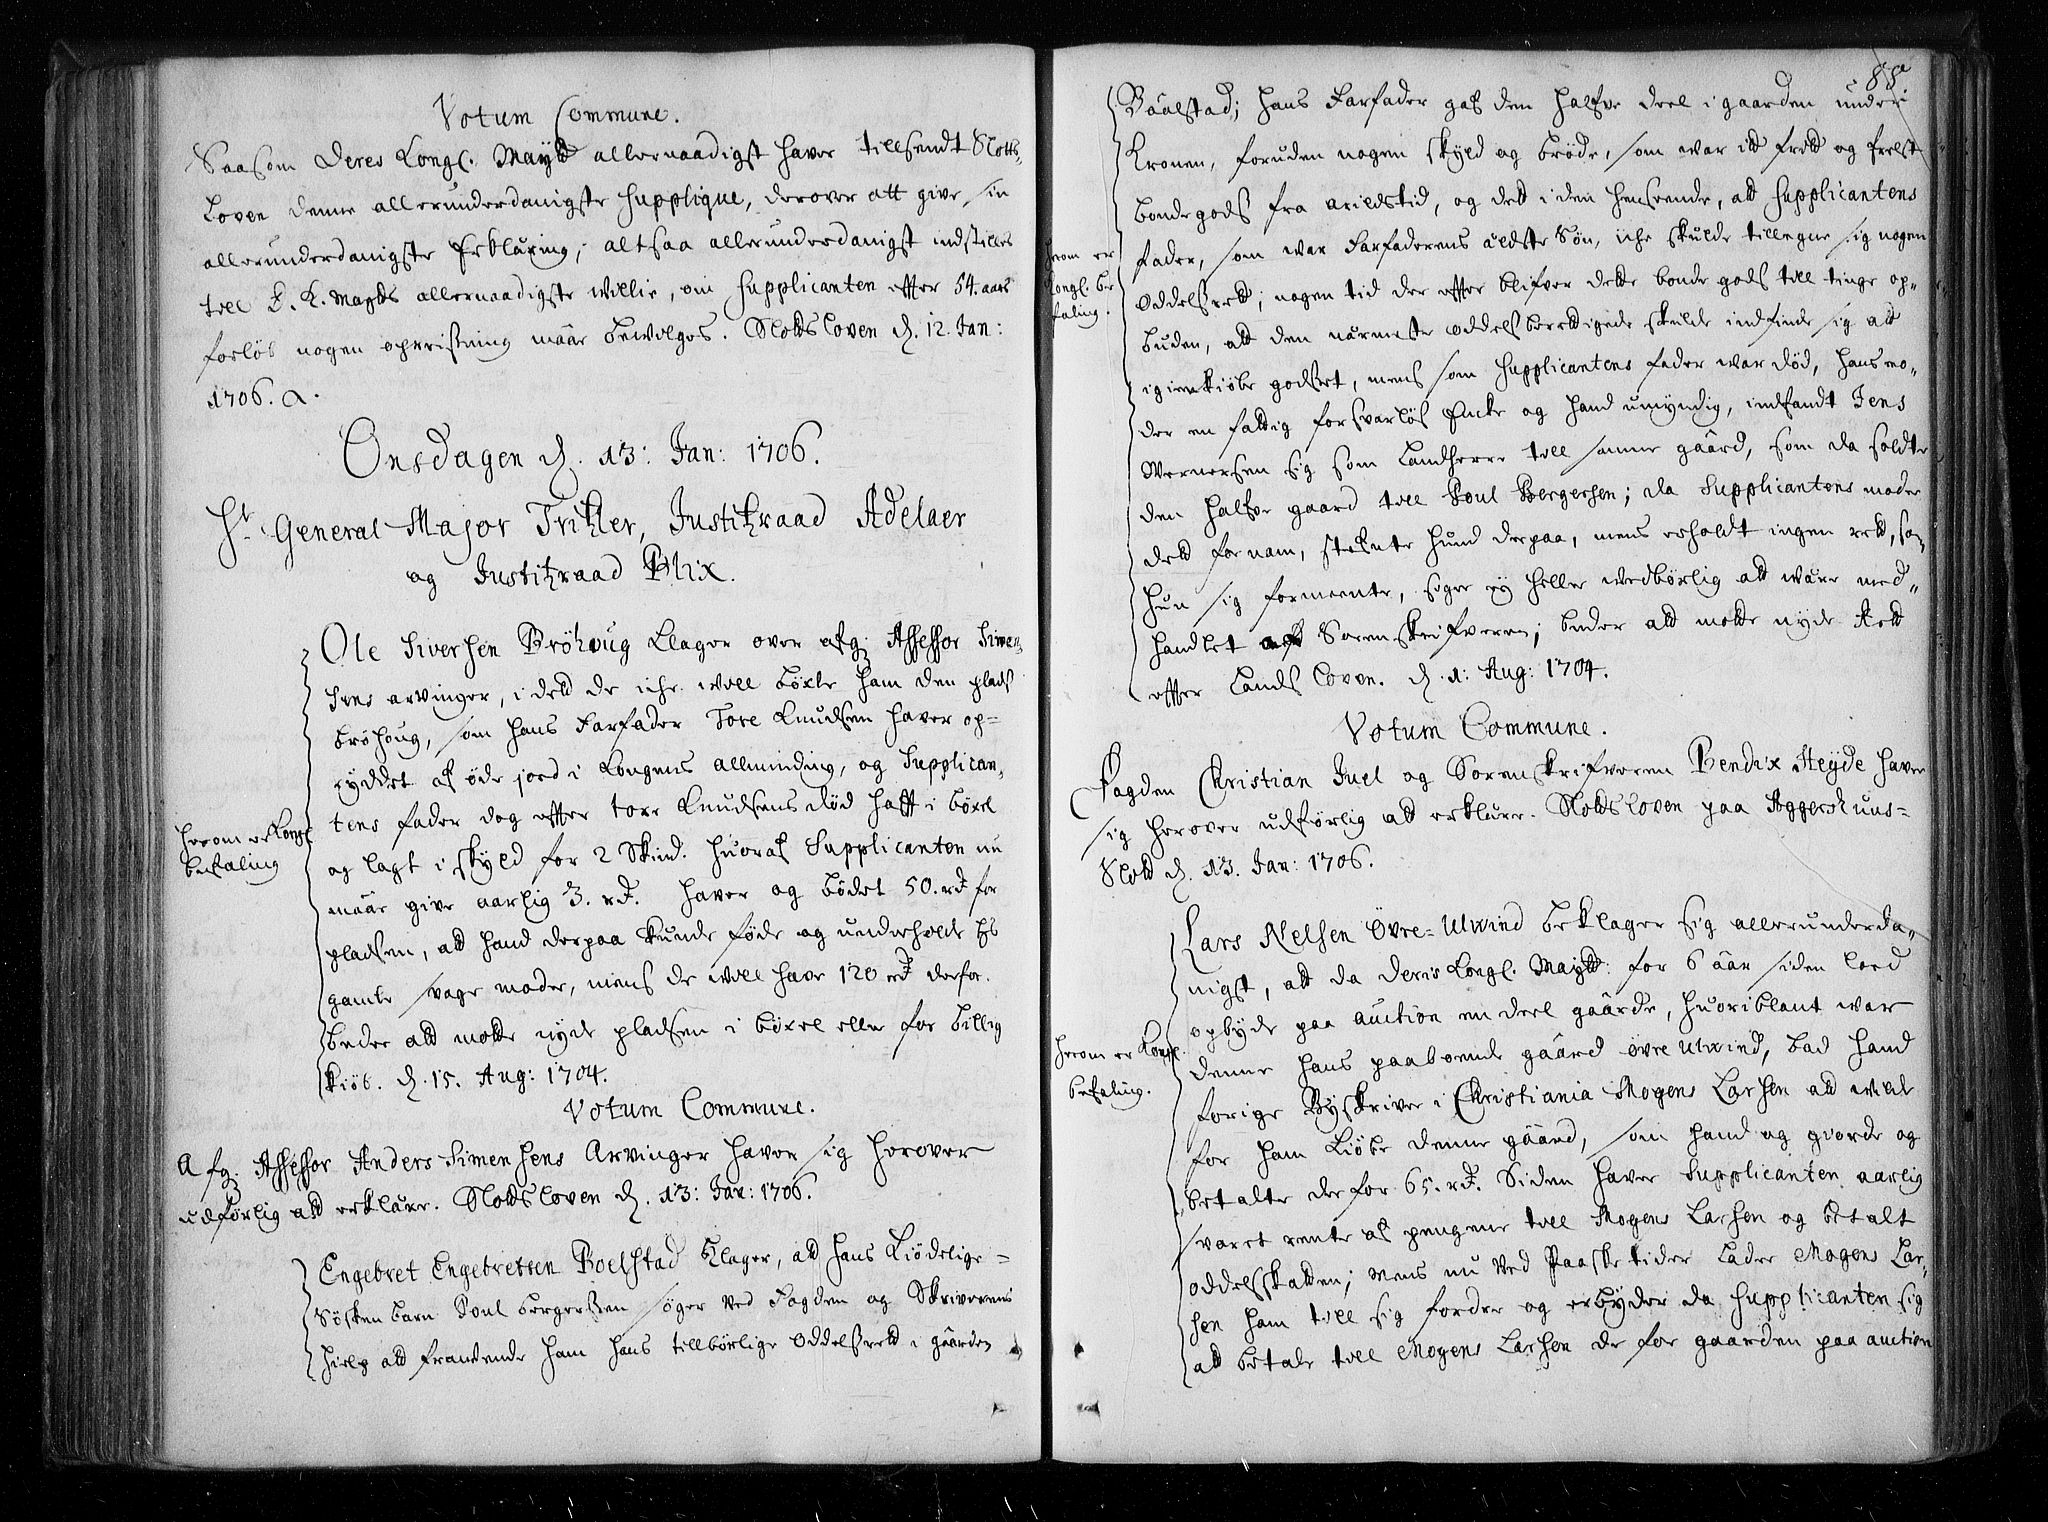 Votum Commune.
Saasom Deres Kongl. Mayst allernaadigst haver tillsendt Slots-
Loven denne allerunderdanigste Supplique, derover att give sin
allerunderdanigste Erklæring; altsaa allerunderdanigst indstilles
till D. K. Mayts allernaadigste villie, om Supplicanten effter 54. aars
forløb nogen opreisning maae bevilges. Slotsloven d. 12. Jan:
1706.
Onsdagen d. 13: Jan: 1706.
Hr. General Major Tritzler, Justitzraad Adelaer
og Justitzraad Blix.
Ole Siversen Bröhoug klager over afg: Assessor Simen-
sens arvinger, i det de iche will böxle ham den plads
Bröhoug, som hans Farfader Tore Knudsen haver op-
ryddet af øde jord i Kongens allminding, og Supplican-
tens fader dog effter Tore Knudsens død hafft i böxel
og lagt i skyld for 2 Skind. huoraf Supplicanten nu
maae give aarlig 3. rd. haver og bödet 50. rd for
pladsen, att hand derpaa kunde føde og underholde hs
gamle svage moder, mens de will have 120 rd derfor.
beder att motte nyde pladsen i böxel eller for billig
kiöb. d. 15. Aug: 1704.
herom er Kongl.
befaling
Votum Commune.
Afg. Assessor Anders Simensens Arvinger haver sig herover
udførlig att erklære. Slotsloven d. 13: Jan: 1706.
Engebret Engebretsen Boelstad klager, att hans kiödelige-
Søskenbarn Poul Bergersen søger ved Fogden og Skriverens
hielp att fravende ham hans tillbørlige Oddelsrett i gaarden
88
Baalstad; hans Farfader gaf den halfve deel i gaarden under
Kronen, foruden nogen skyld og brøde, som war itt frit og frelst
bondegods fra arildstid, og det i den henseende, att Supplicantens
fader, som war Farfaderens äldste Søn, iche skulde tillegne sig nogen
Oddelsrett; nogen tid der effter blifver dette bonde gods till tinge op-
buden, att den närmeste oddelsberettigede skulde indfinde sig att
igienkiöbe godset, mens som Supplicantens fader war død, hans mo-
der en fattig forsvarløs Encke og hand umyndig, indfandt Jens
Wernersen sig som Landherre till samme gaard, som da soldte
den halfve gaard till Poul Bergersen; da Supplicantens moder
det fornam, stefnte hund derpaa, mens erholdt ingen rett, som
hun sig formeente, siger ey heller wedbørlig att være med-
handlet af Sorenskrifveren; beder att motte nyde Rett
effter Lands Loven. d. 1: Aug: 1704.
herom er
Kongl. be-
faling.
Votum Commune.
Fogden Christian Juel og Sorenskrifveren Bendix Heyde haver
sig herover udførlig att erklære. Slotsloven paa Aggershuus-
Slott d. 13. Jan: 1706.
Lars Nelsen Övre-Ulvind beklager sig allerunderda-
nigst, att da Deris Kongl. Mayst: for 6 aar siden loed
opbyde paa auction en deel gaarde, huoriblant war
denne hans paaboende gaard övre Ulvind, bad hand
forige Byskriver i Christiania Mogens Larsen att will
for ham kiöbe denne gaard, som hand og giorde og
betalte derfor 65. rd. Siden haver Supplicanten aarlig
svaret rente af pengene till Mogens Larsen og betalt
oddelsskatten; mens nu ved Paaske tider lader Mogens Lar-
sen ham till sig fordre og erbyder da Supplicanten sig
att betale till Mogens Larsen de for gaarden paa auction
herom er Kongl.
befaling.